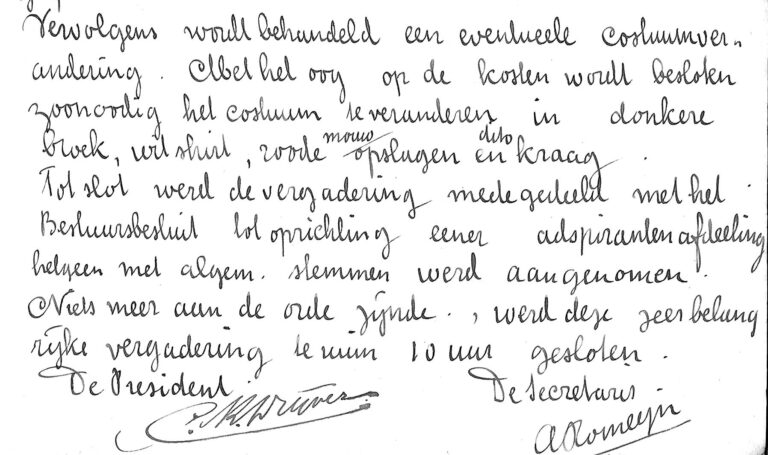 Vervolgens wordt behandeld een eventueele costuumver-
andering. Met het oog op de kosten wordt besloten
zoonoodig het costuum te veranderen in donkere
broek, wit shirt, roode mouw opslagen en dito kraag.
Tot slot werd de vergadering medegedeeld met het
Bestuursbesluit tot oprichting eener adspirantenafdeeling
hetgeen met algem. stemmen werd aangenomen.
Niets meer aan de orde zijnde., werd deze zeer belang
rijke vergadering te ruim 10 uur gesloten.
De President. De Secretaris
A Romeijn